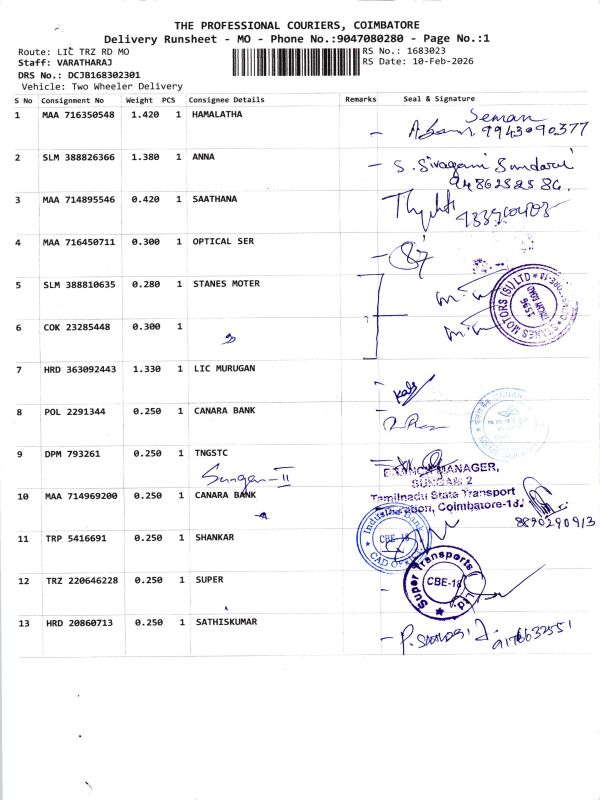 THE PROFESSIONAL COURIERS, COIMBATORE
Delivery Runsheet - MO - Phone No.:9047080280 - Page No.:1
Route: LIC TRZ RD MO
RS No.: 1683023
Staff: VARATHARAJ
RS Date: 10-Feb-2026
DRS No.: DCJB168302301
Vehicle: Two Wheeler Delivery
S No Consignment No Weight PCS Consignee Details Remarks Seal & Signature
1 MAA 716350548 1.420 1 HAMALATHA
9943090377
2 SLM 388826366 1.380 1 ANNA
S. Sivagami Sundari
9486252586.
3 MAA 714895546 0.420 1 SAATHANA
4 MAA 716450711 0.300 1 OPTICAL SER
5 SLM 388810635 0.280 1 STANES MOTER
STANES MOTORS (SI) LTD
6 COK 23285448 0.300 1
7 HRD 363092443 1.330 1 LIC MURUGAN
8 POL 2291344 0.250 1 CANARA BANK
9 DPM 793261 0.250 1 TNGSTC
Sungam-II
MANAGER,
SUNGAM 2
Tamilnadu State Transport
Coimbatore-18.
10 MAA 714969200 0.250 1 CANARA BANK
8890290913
11 TRP 5416691 0.250 1 SHANKAR
IndusInd Bank
CBE-18
12 TRZ 220646228 0.250 1 SUPER
Super Transports
CBE-18
13 HRD 20860713 0.250 1 SATHISKUMAR